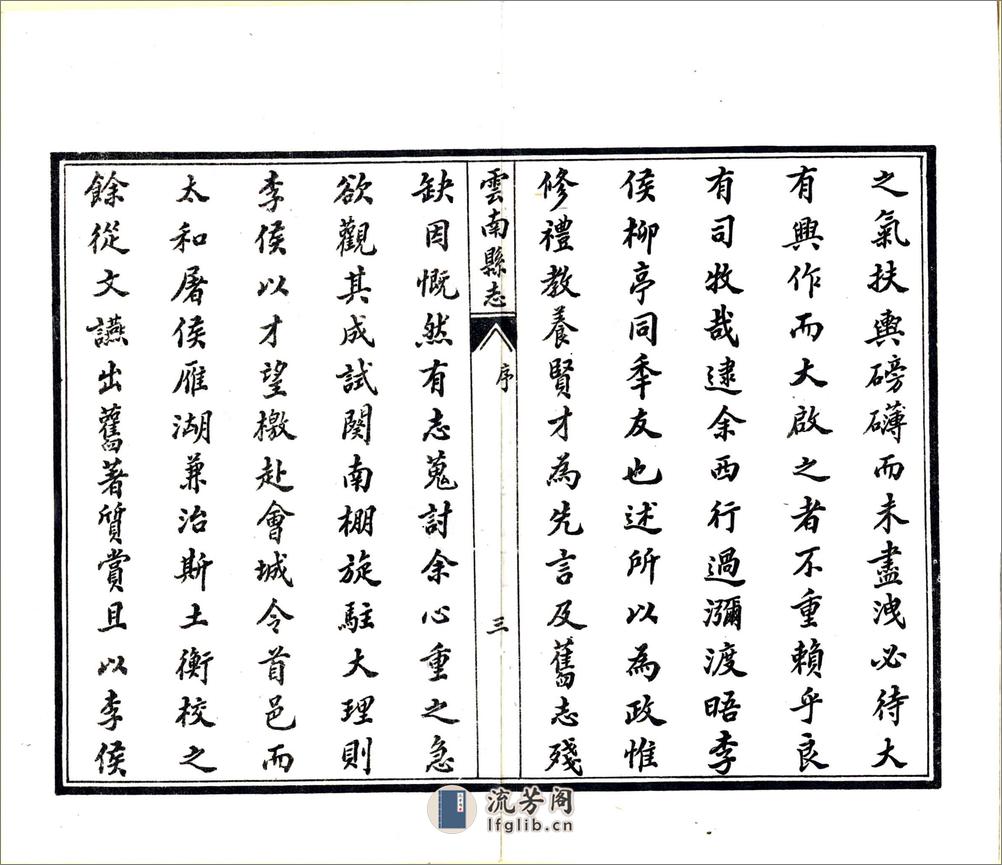 之氣扶輿磅礴而未盡洩必待大
有興作而大啟之者不重賴乎良
有司牧哉逮余西行過瀰渡晤李
侯柳亭同秊友也述所以為政惟
修禮教養賢才為先言及舊志殘
雲南縣志
序
三
缺因慨然有志蒐討余心重之急
欲觀其成試闋南棚旋駐大理則
李侯以才望檄赴會城令首邑而
太和屠侯雁湖兼治斯土衡校之
餘從文讌出舊著質賞且以李侯
流芳阁
lfglib.cn